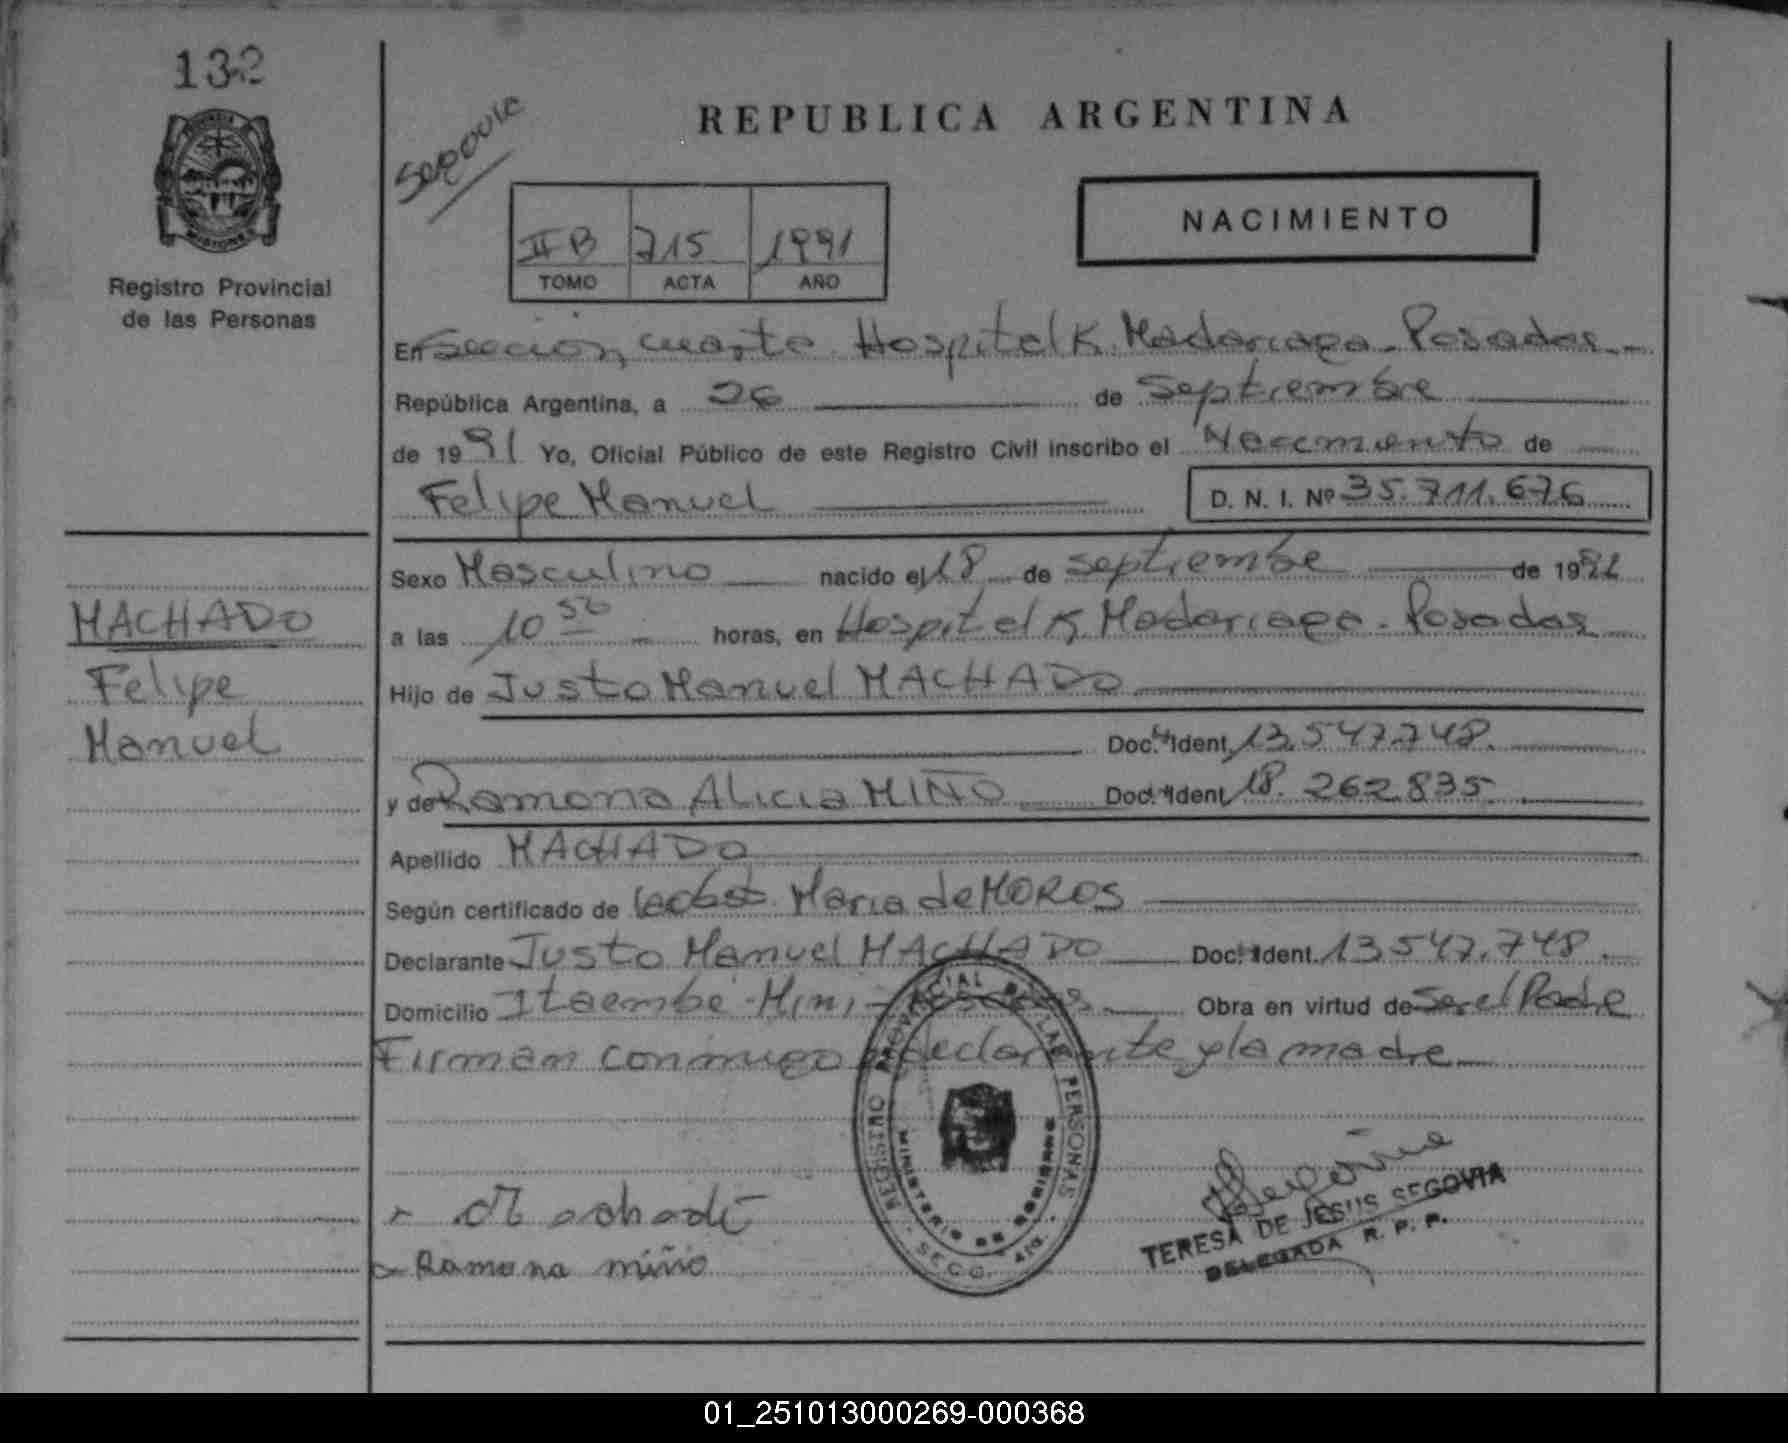 132
Registro Provincial
de las Personas
MACHADO
Felipe
Manuel
REPUBLICA ARGENTINA
II B 715 1991
TOMO ACTA AÑO
NACIMIENTO
En Sección cuarta Hospital K. Madariaga - Posadas
República Argentina, a 26 de Septiembre
de 1991 Yo, Oficial Público de este Registro Civil inscribo el Nacimiento de
Felipe Manuel D. N. I. Nº 35.711.676
Sexo Masculino nacido el 18 de septiembre de 1991
a las 10 50 horas, en Hospital K. Madariaga - Posadas
Hijo de Justo Manuel MACHADO
Doc. Ident. 13.547.748
y de Ramona Alicia MIÑO Doc. Ident. 18.262.835
Apellido MACHADO
Según certificado de Maria de MOROS
Declarante Justo Manuel MACHADO Doc. Ident. 13.547.748
Domicilio Itaembé - Mini - Posadas Obra en virtud de Ser el Padre
Firman conmigo declarante y la madre
Machado
Ramona miño
REGISTRO PROVINCIAL DE LAS PERSONAS
MINISTERIO DE GOBIERNO
SECC. 4ta.
TERESA DE JESUS SEGOVIA
DELEGADA R. P. P.
01_251013000269-000368